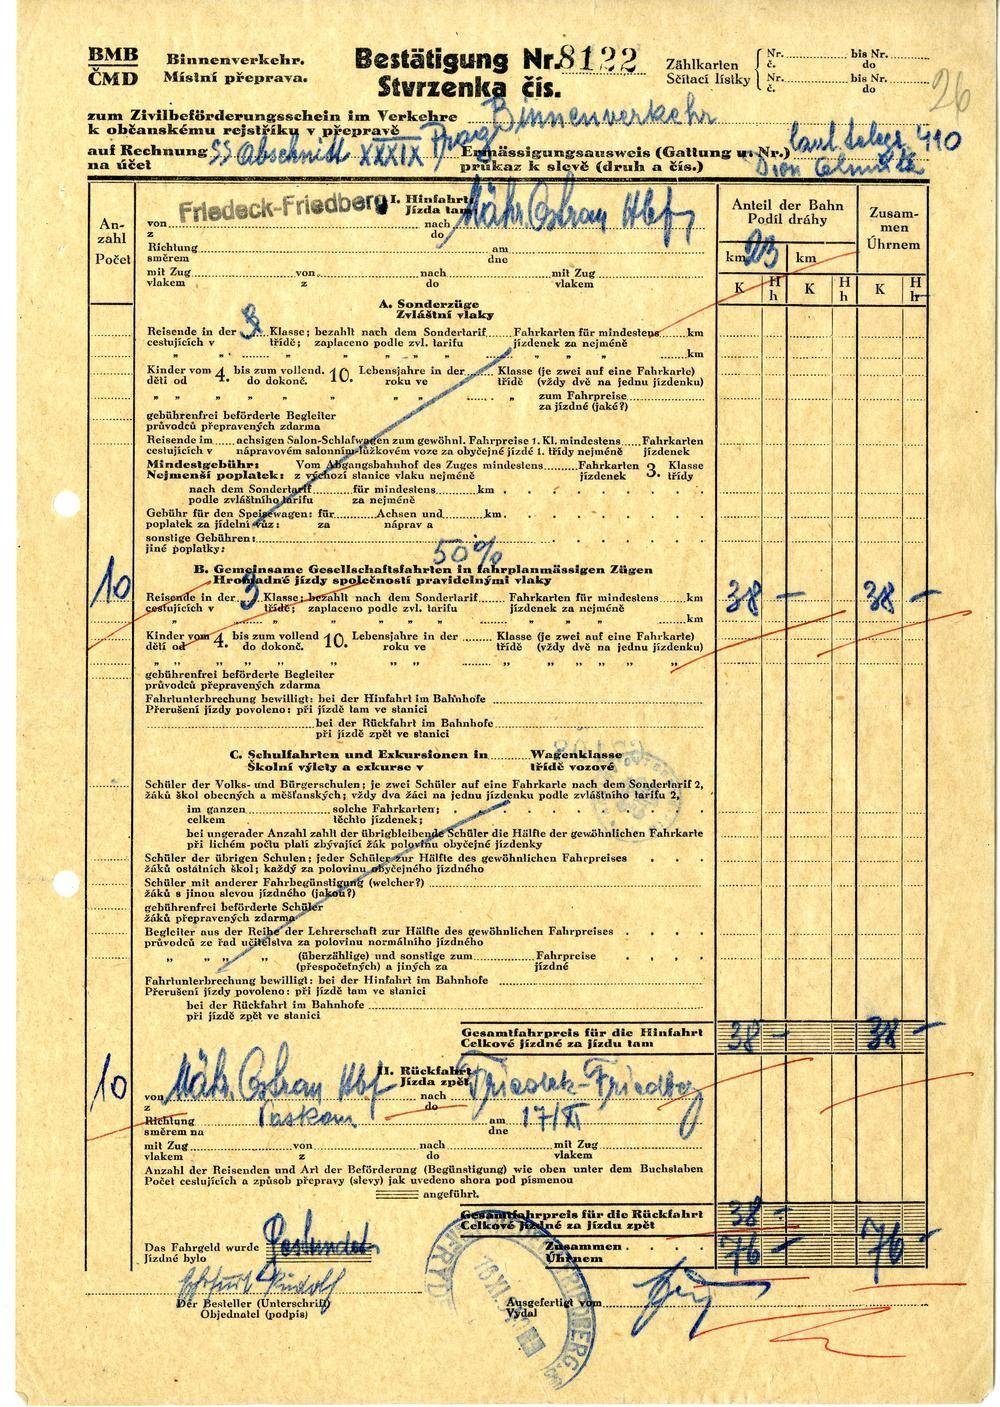 BMB Binnenverkehr. Bestätigung Nr. 8122 Zählkarten Nr. bis Nr.
č. do
ČMD Místní přeprava. Stvrzenka čís. Sčítací lístky Nr. bis Nr.
č. do
26
zum Zivilbeförderungsschein im Verkehre Binnenverkehr
k občanskému rejstříku v přepravě
auf Rechnung SS Abschnitt XXXIX Prag Ermässigungsausweis (Gattung u. Nr.) laut telegr. 410
na účet průkaz k slevě (druh a čís.) Dion Olmütz
An-
zahl
Počet
Friedeck-Friedberg I. Hinfahrt Mähr. Ostrau Hbf
Jízda tam
von nach
z do
Richtung am
směrem dne
mit Zug von nach mit Zug
vlakem z do vlakem
Anteil der Bahn
Podíl dráhy
Zusam-
men
Úhrnem
km 23 km
K H h K H h K H hr
A. Sonderzüge
Zvláštní vlaky
Reisende in der 3 Klasse; bezahlt nach dem Sondertarif Fahrkarten für mindestens km
cestujících v třídě; zaplaceno podle zvl. tarifu jízdenek za nejméně
" " " " " " " " " km
Kinder vom 4. bis zum vollend. 10. Lebensjahre in der Klasse (je zwei auf eine Fahrkarte)
dětí od do dokonč. roku ve třídě (vždy dvě na jednu jízdenku)
" " " " " " " " zum Fahrpreise
za jízdné (jaké?)
gebührenfrei beförderte Begleiter
průvodců přepravených zdarma
Reisende im achsigen Salon-Schlafwagen zum gewöhnl. Fahrpreise 1. Kl. mindestens Fahrkarten
cestujících v nápravovém salonním-lůžkovém voze za obyčejné jízdé 1. třídy nejméně jízdenek
Mindestgebühr: Vom Abgangsbahnhof des Zuges mindestens Fahrkarten 3. Klasse
Nejmenší poplatek: z výchozí stanice vlaku nejméně jízdenek třídy
nach dem Sondertarif für mindestens km
podle zvláštního tarifu za nejméně
Gebühr für den Speisewagen: für Achsen und km
poplatek za jídelní vůz: za náprav a
sonstige Gebühren:
jiné poplatky:
50%
B. Gemeinsame Gesellschaftsfahrten in fahrplanmässigen Zügen
Hromadné jízdy společností pravidelnými vlaky
10 Reisende in der 3 Klasse; bezahlt nach dem Sondertarif Fahrkarten für mindestens km 38 — 38 —
cestujících v třídě; zaplaceno podle zvl. tarifu jízdenek za nejméně
" " " " " " " " km
Kinder vom 4. bis zum vollend 10. Lebensjahre in der Klasse (je zwei auf eine Fahrkarte)
dětí od do dokonč. roku ve třídě (vždy dvě na jednu jízdenku)
" " " " " " " " " " " "
gebührenfrei beförderte Begleiter
průvodců přepravených zdarma
Fahrtunterbrechung bewilligt: bei der Hinfahrt im Bahnhofe
Přerušení jízdy povoleno: při jízdě tam ve stanici
bei der Rückfahrt im Bahnhofe
při jízdě zpět ve stanici
C. Schulfahrten und Exkursionen in Wagenklasse
Školní výlety a exkurse v třídě vozové
Schüler der Volks- und Bürgerschulen; je zwei Schüler auf eine Fahrkarte nach dem Sondertarif 2,
žáků škol obecných a měšťanských; vždy dva žáci na jednu jízdenku podle zvláštního tarifu 2,
im ganzen solche Fahrkarten;
celkem těchto jízdenek;
bei ungerader Anzahl zahlt der übrigbleibende Schüler die Hälfte der gewöhnlichen Fahrkarte
při lichém počtu platí zbývající žák polovinu obyčejné jízdenky
Schüler der übrigen Schulen; jeder Schüler zur Hälfte des gewöhnlichen Fahrpreises
žáků ostatních škol; každý za polovinu obyčejného jízdného
Schüler mit anderer Fahrbegünstigung (welcher?)
žáků s jinou slevou jízdného (jakou?)
gebührenfrei beförderte Schüler
žáků přepravených zdarma
Begleiter aus der Reihe der Lehrerschaft zur Hälfte des gewöhnlichen Fahrpreises
průvodců ze řad učitelstva za polovinu normálního jízdného
" " " " (überzählige) und sonstige zum Fahrpreise
(přespočetných) a jiných za jízdné
Fahrtunterbrechung bewilligt: bei der Hinfahrt im Bahnhofe
Přerušení jízdy povoleno: při jízdě tam ve stanici
bei der Rückfahrt im Bahnhofe
při jízdě zpět ve stanici
Gesamtfahrpreis für die Hinfahrt 38 — 38 —
Celkové jízdné za jízdu tam
10 Mähr. Ostrau Hbf II. Rückfahrt Friedek-Friedberg
Jízda zpět
von nach
z do
Richtung Paskau am 17/XI
směrem na dne
mit Zug von nach mit Zug
vlakem z do vlakem
Anzahl der Reisenden und Art der Beförderung (Begünstigung) wie oben unter dem Buchstaben
Počet cestujících a způsob přepravy (slevy) jak uvedeno shora pod písmenou
angeführt.
Gesamtfahrpreis für die Rückfahrt 38 —
Celkové jízdné za jízdu zpět
Das Fahrgeld wurde gestundet Zusammen 76 — 76 —
Jízdné bylo Úhrnem
Rudolf
Der Besteller (Unterschrift) Ausgefertigt vom
Objednatel (podpis) Vydal